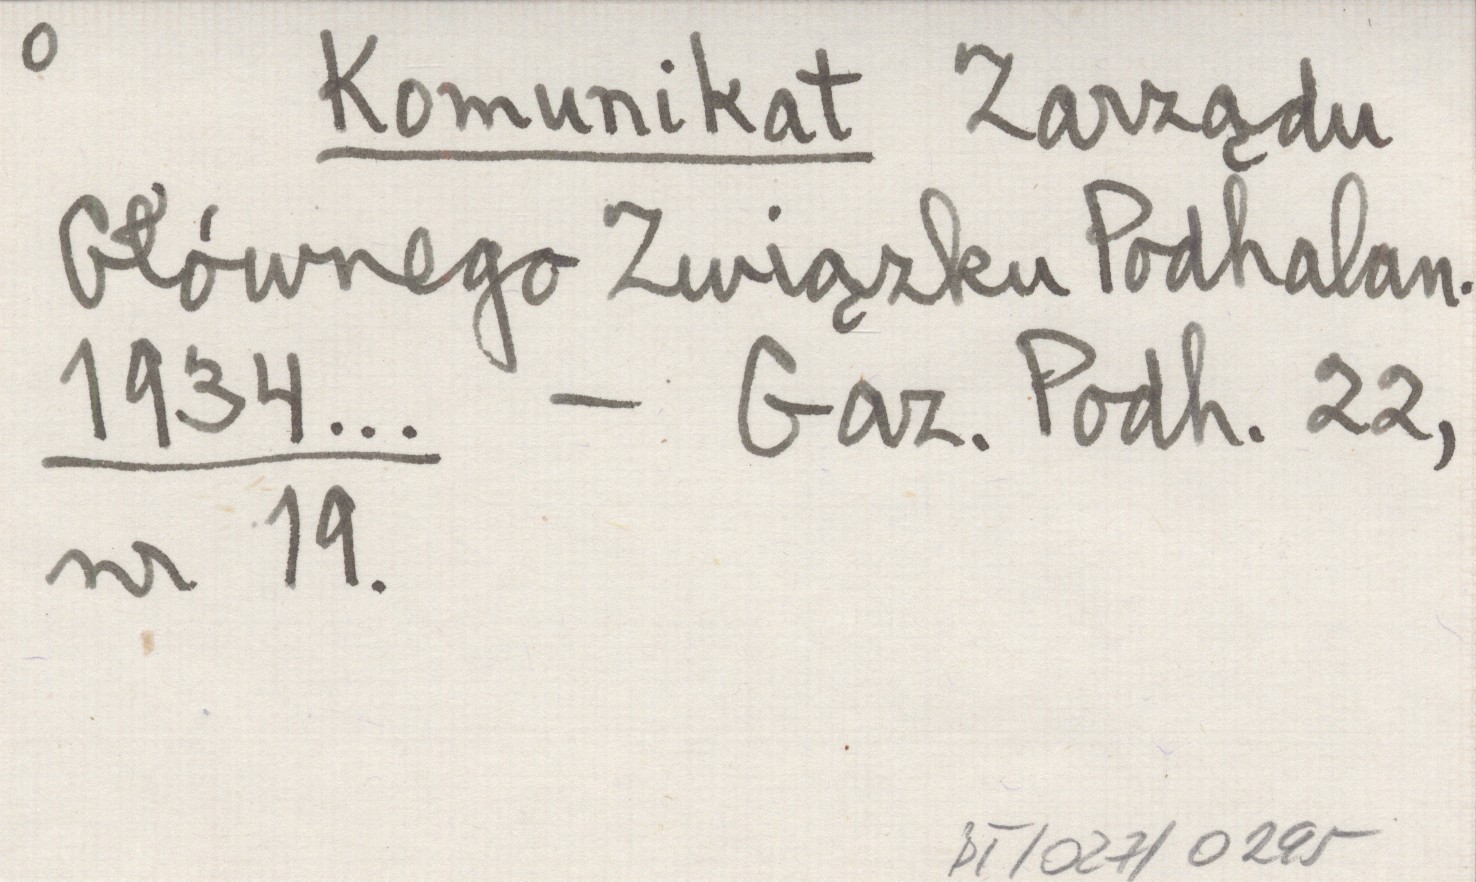 o
Komunikat Zarządu
Głównego Związku Podhalan.
1934... — Gaz. Podh. 22,
nr 19.
BT/027/0295